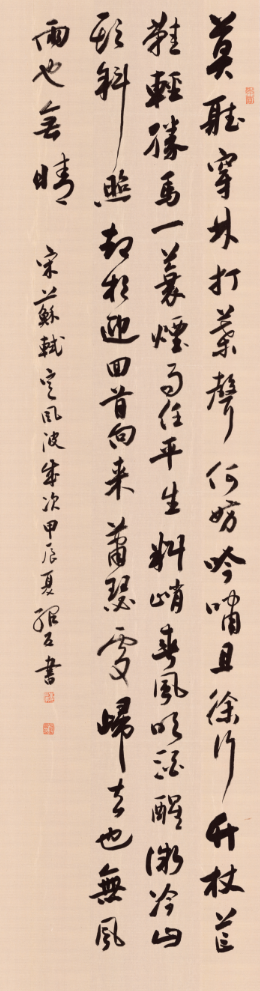 莫聽穿林打葉聲何妨吟嘯且徐行竹杖芒
鞋輕勝馬一蓑煙雨任平生料峭春風吹酒醒微冷山
頭斜照却相迎回首向来蕭瑟處歸去也無風
雨也無晴
宋蘇軾定風波歲次甲辰夏書